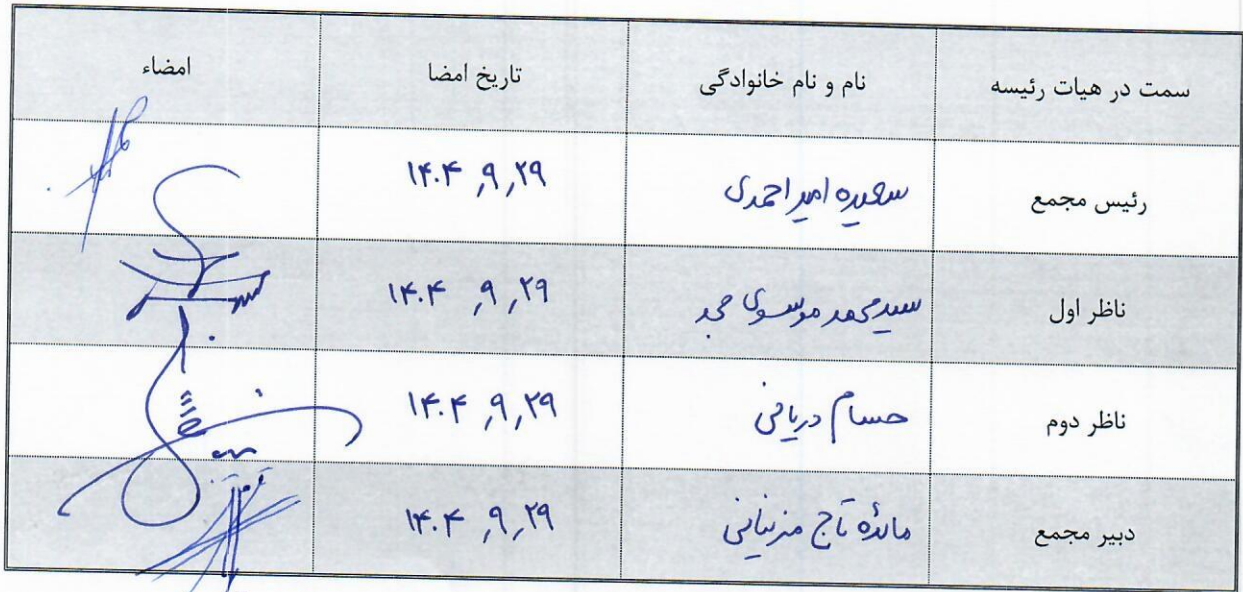 سمت در هیات رئیسه نام و نام خانوادگی تاریخ امضا امضاء
رئیس مجمع سعیده امیراحمدی ۱۴۰۴٫۹٫۲۹
ناظر اول سیدمحمد موسوی مجد ۱۴۰۴٫۹٫۲۹
ناظر دوم حسام دریافی ۱۴۰۴٫۹٫۲۹
دبیر مجمع مائده تاج مزینانی ۱۴۰۴٫۹٫۲۹